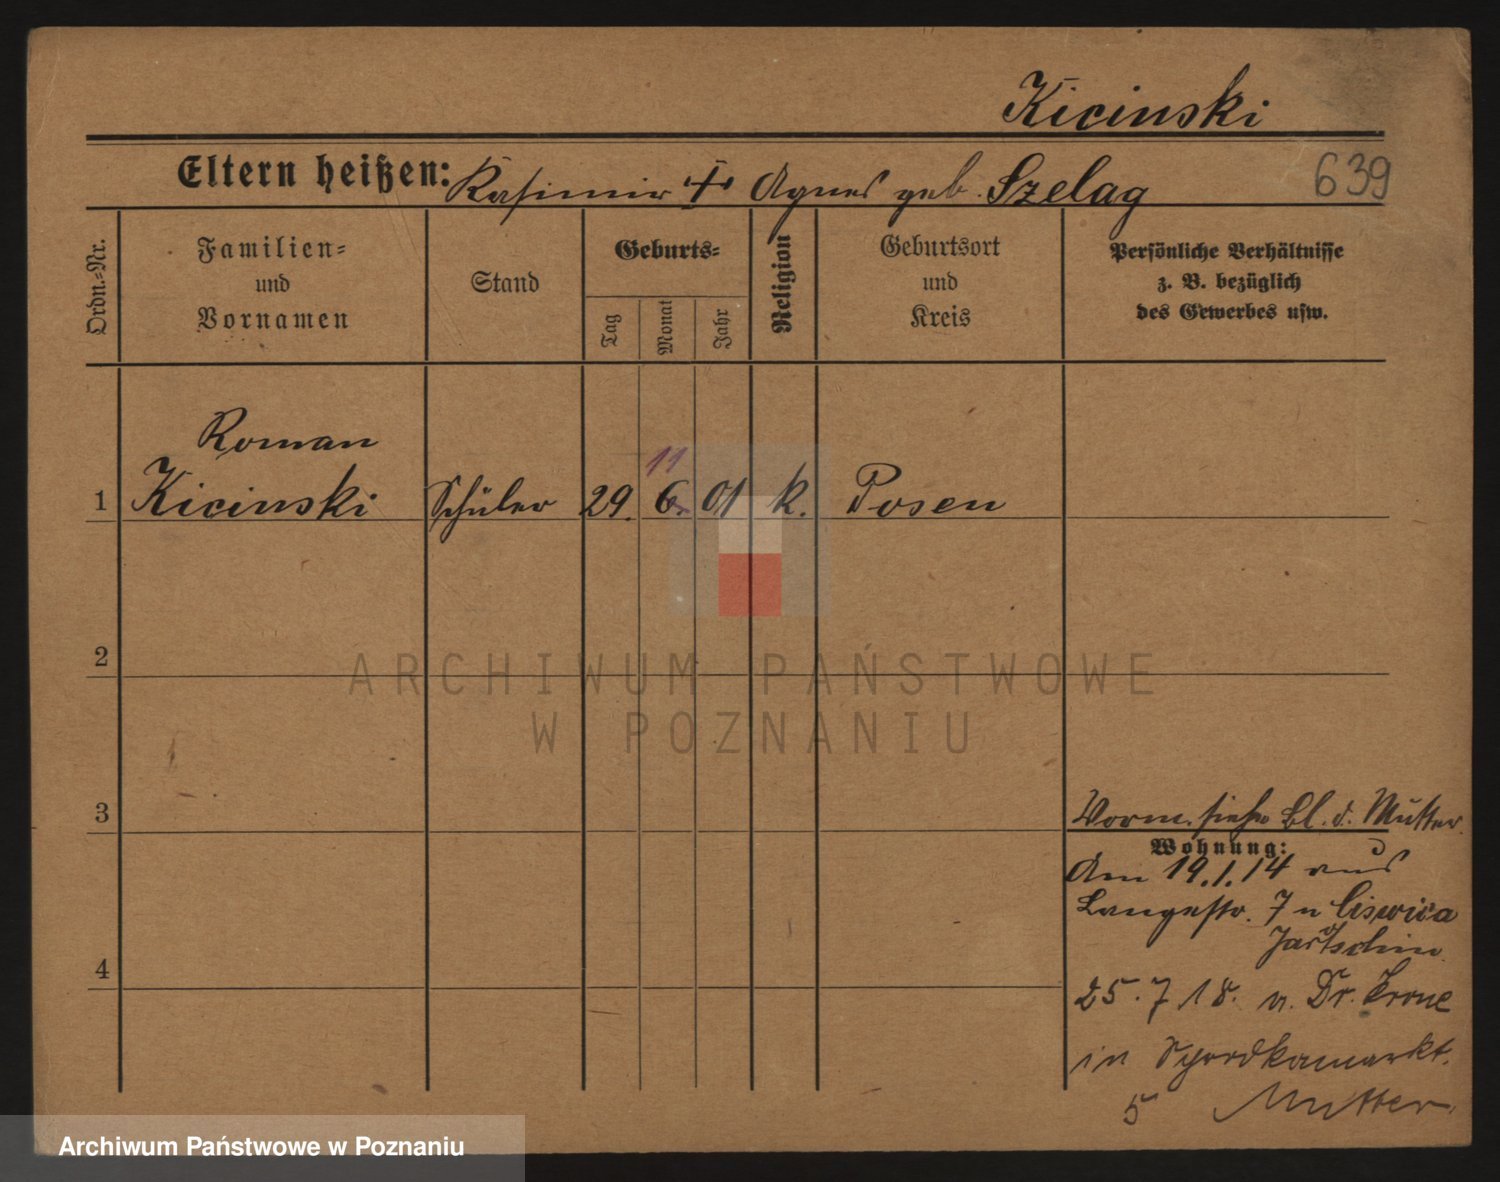 Kicinski
Eltern heißen: Kasimir + Agnes geb. Szelag
639
Ordn.-Nr.
Familien-
und
Vornamen
Stand
Geburts-
Tag
Monat
Jahr
Religion
Geburtsort
und
Kreis
Persönliche Verhältnisse
z. B. bezüglich
des Gewerbes usw.
Roman
11
1 Kicinski Schüler 29. 6. 01 k. Posen
2
ARCHIWUM PAŃSTWOWE
W POZNANIU
3
Vorm. siehe Bl. d. Mutter.
Wohnung:
Am 19.1.14 aus
Langestr. 7 n Ciswica
Jarotschin
4
25.7.18. n. Dr. Krone
in
5 Mutter.
Archiwum Państwowe w Poznaniu